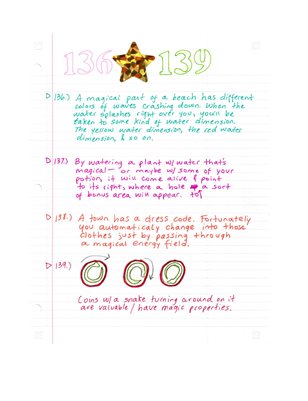 136 139
136.) A magical part of a beach has different
colors of waves crashing down. When the
water splashes right over you, you'll be
taken to some kind of water dimension.
The yellow water dimension, the red water
dimension, & so on.
137.) By watering a plant w/water that's
magical – or maybe w/some of your
potion, it will come alive & point
to its right, where a hole a sort
of bonus area will appear. to
138.) A town has a dress code. Fortunately
you automatically change into those
clothes just by passing through
a magical energy field.
139.)
Coins w/a snake turning around on it
are valuable/have magic properties.